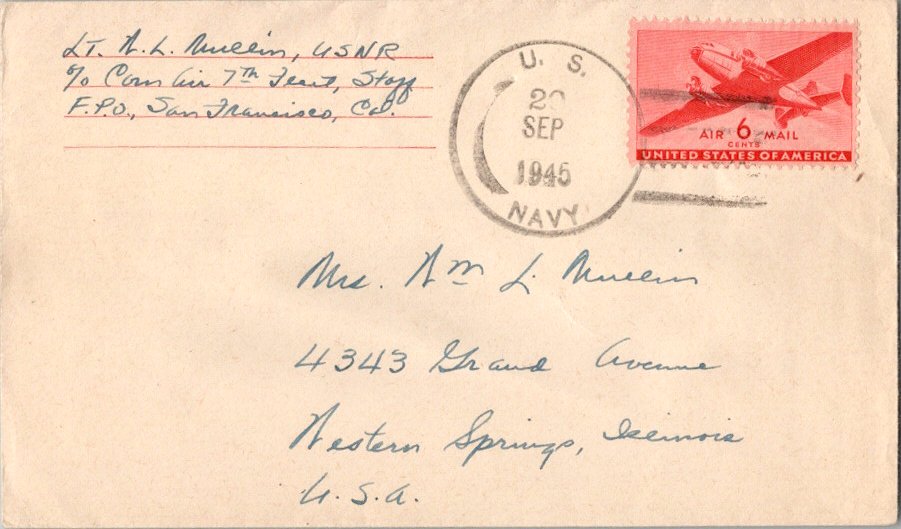 Lt. W. L. Mullin, USNR
c/o Com Air 7th Fleet, Staff
F.P.O., San Francisco, Cal.
U. S.
SEP
1945
NAVY
AIR 6 MAIL
CENTS
UNITED STATES OF AMERICA
Mrs. Wm L. Mullin
4343 Grand Avenue
Western Springs, Illinois
U.S.A.